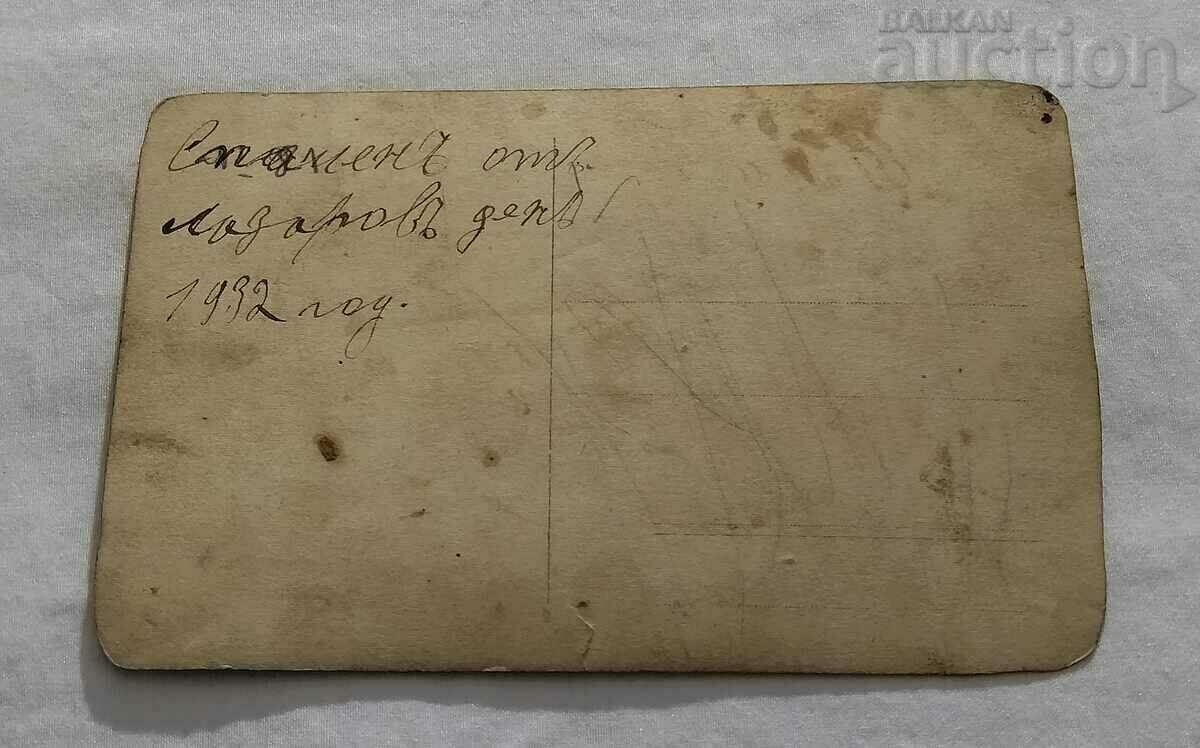 BALKAN
auction
Спаменъ отъ
Лазаровъ день
1932 год.